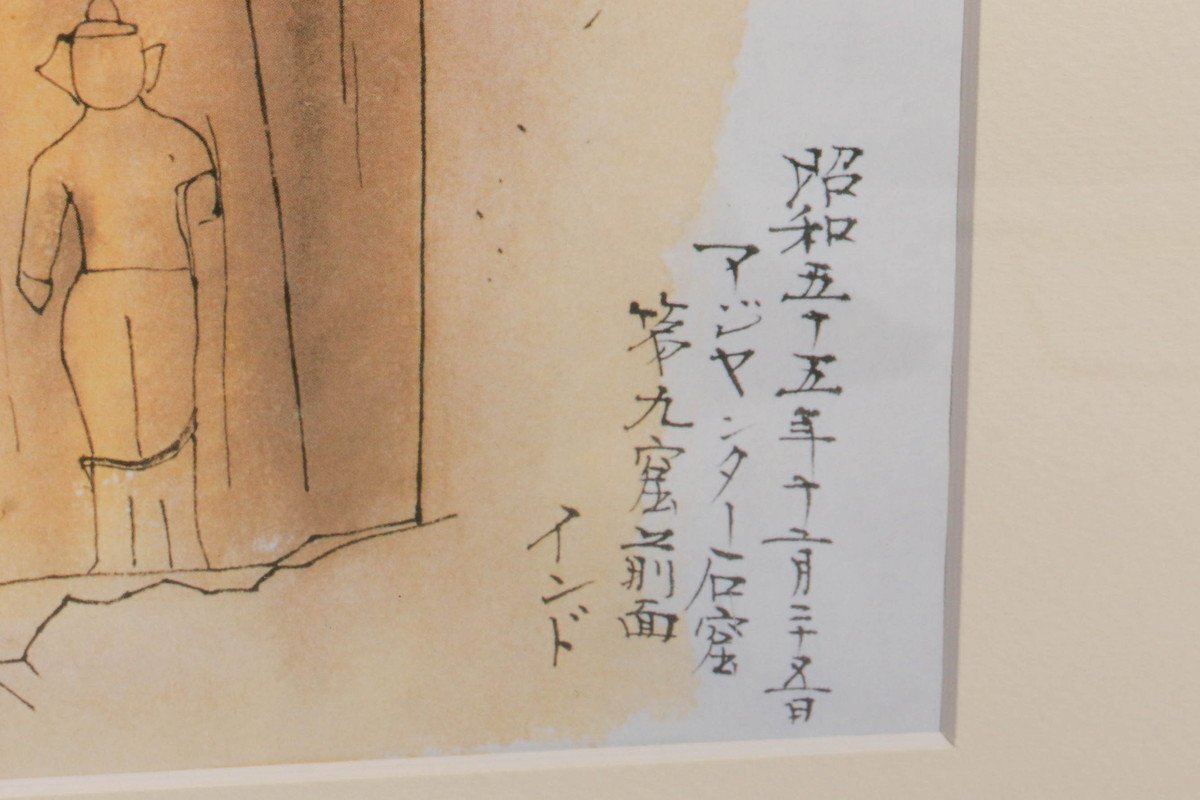 昭和五十五年十二月二十五日
アジヤンター石窟
第九窟前面
インド